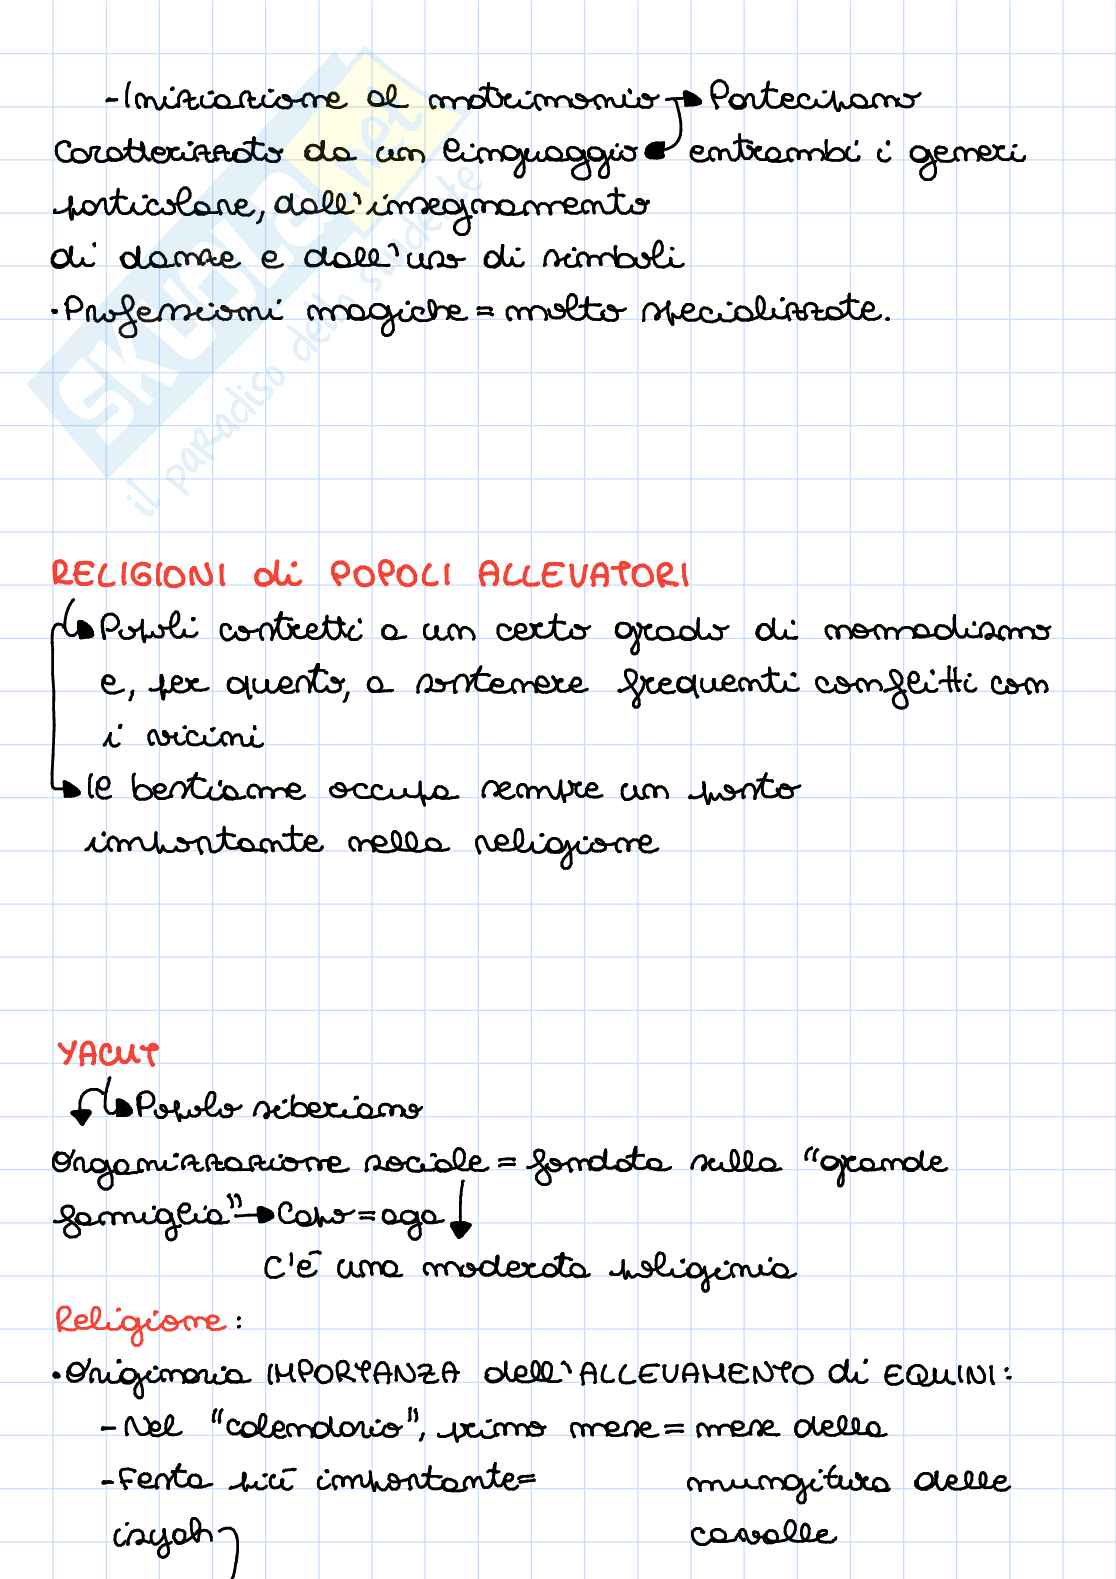 -Iniziazione al matrimonio → Partecipano
caratterizzato da un linguaggio entrambi i generi
particolare, dall'insegnamento
di danze e dall'uso di simboli
·Professioni magiche = molto specializzate.
SKUOLA.net
il paradiso dello studente
RELIGIONI di POPOLI ALLEVATORI
Popoli costretti a un certo grado di nomadismo
e, per questo, a sostenere frequenti conflitti con
i vicini
le bestiame occupa sempre un posto
importante nella religione
YACUT
Popolo siberiano
Organizzazione sociale = fondata sulla "grande
famiglia" → Capo = aga
C'è una moderata poliginia
Religione:
·Originaria IMPORTANZA dell'ALLEVAMENTO di EQUINI:
-Nel "calendario", primo mese = mese della
-Festa più importante= mungitura delle
isyah cavalle